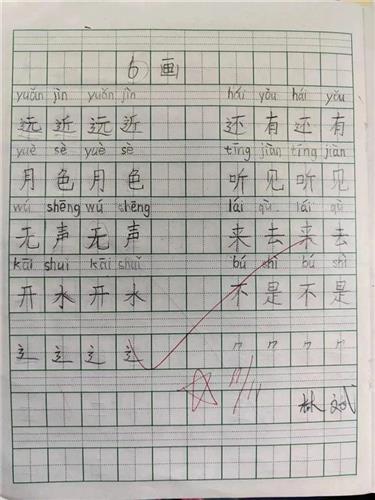 6 画
yuǎn jìn yuǎn jìn hái yǒu hái yǒu
远 近 远 近 还 有 还 有
yuè sè yuè sè tīng jiàn tīng jiàn
月 色 月 色 听 见 听 见
wú shēng wú shēng lái qù lái qù
无 声 无 声 来 去 来 去
kāi shuǐ kāi shuǐ bú shì bú shì
开 水 开 水 不 是 不 是
辶 辶 辶 辶
11/11
林 斌